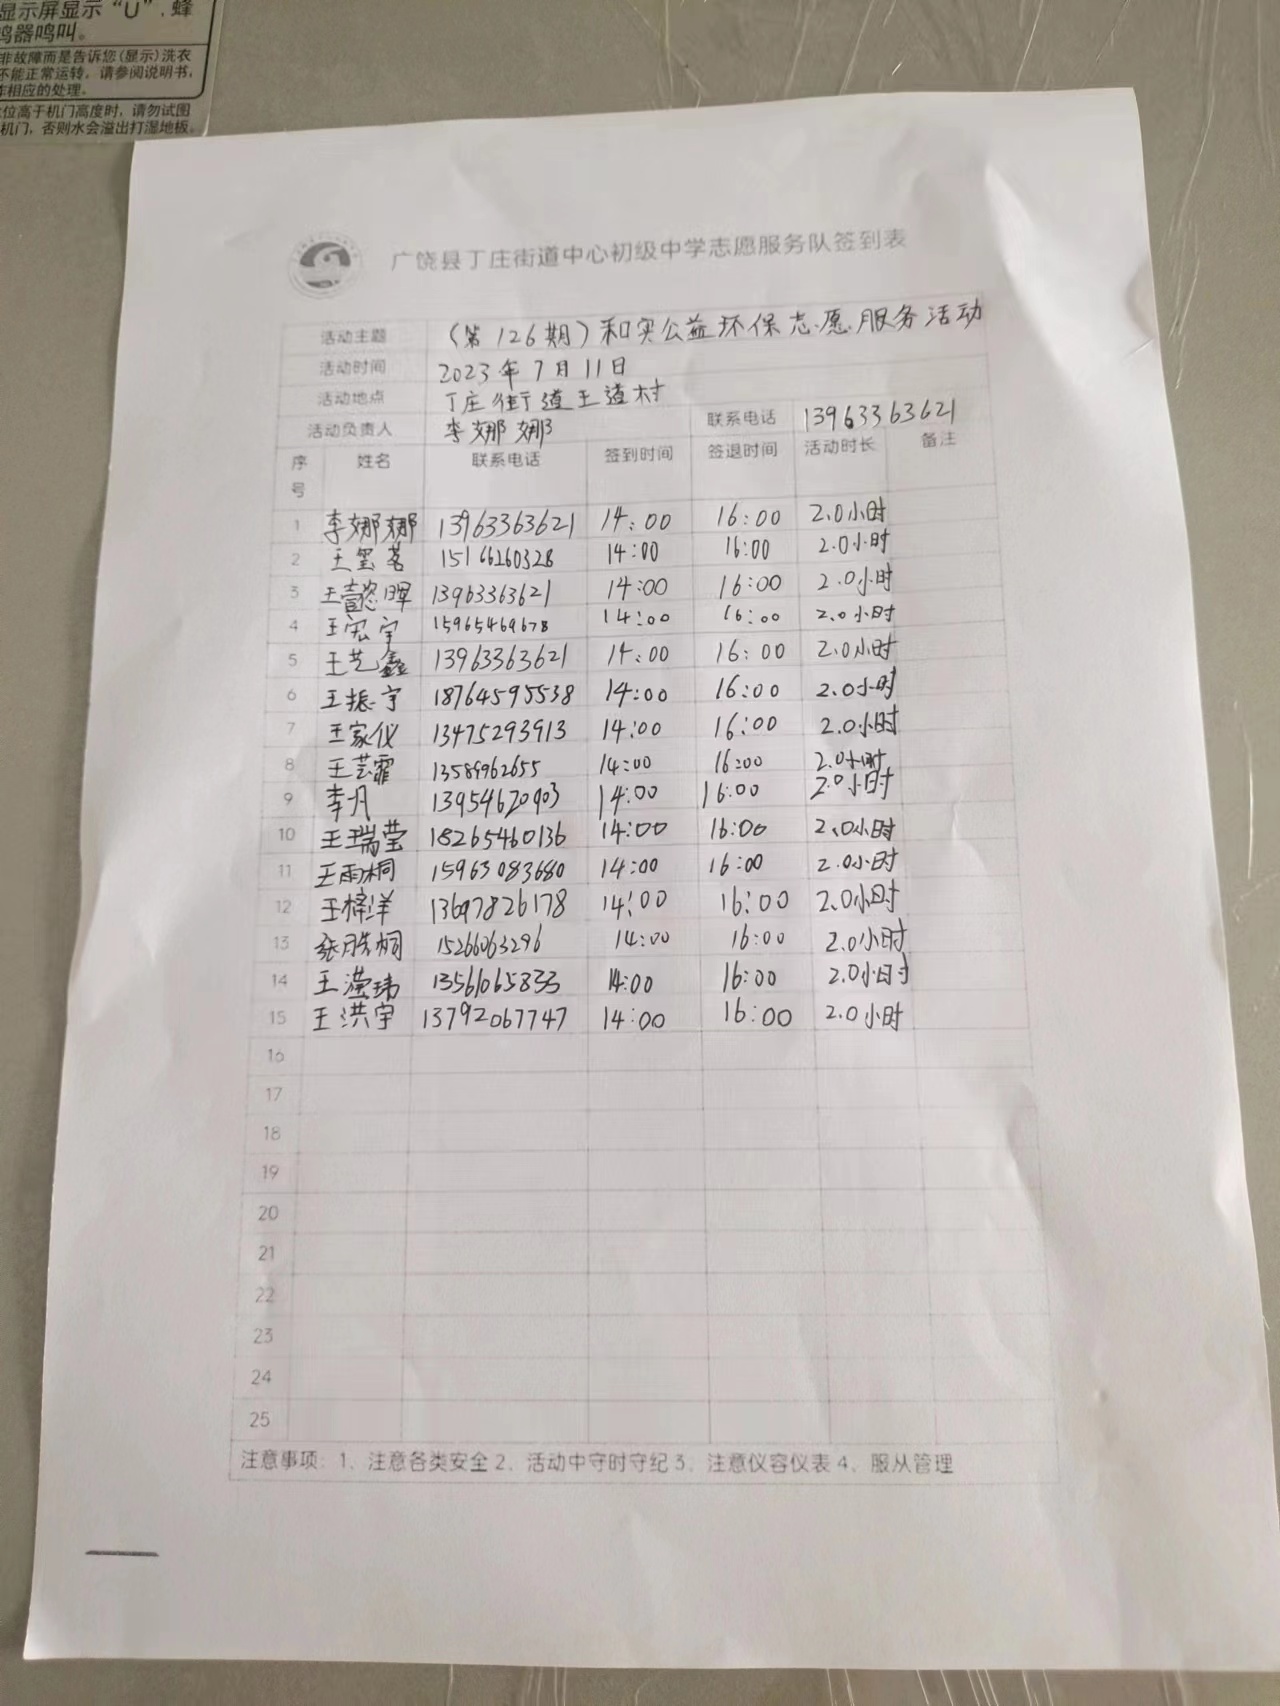 显示屏显示“U”，蜂
鸣器鸣叫。
非故障而是告诉您(显示)洗衣
不能正常运转，请参阅说明书，
作相应的处理。
位高于机门高度时，请勿试图
机门，否则水会溢出打湿地板。
广饶县丁庄街道中心初级中学志愿服务队签到表
活动主题 （第126期）和实公益环保志愿服务活动
活动时间 2023年7月11日
活动地点 丁庄街道王道村
活动负责人 李娜娜 联系电话 13963363621
序号 姓名 联系电话 签到时间 签退时间 活动时长 备注
1 李娜娜 13963363621 14:00 16:00 2.0小时
2 王玺茗 15166260328 14:00 16:00 2.0小时
3 王懿晖 13963363621 14:00 16:00 2.0小时
4 王宏宇 15965469678 14:00 16:00 2.0小时
5 王艺鑫 13963363621 14:00 16:00 2.0小时
6 王振宇 18764595538 14:00 16:00 2.0小时
7 王家仪 13475293913 14:00 16:00 2.0小时
8 王芸霏 13589962655 14:00 16:00 2.0小时
9 李凡 13954620903 14:00 16:00 2.0小时
10 王瑞莹 18265460136 14:00 16:00 2.0小时
11 王雨桐 15963083680 14:00 16:00 2.0小时
12 王梓洋 13697826178 14:00 16:00 2.0小时
13 张皓桐 15266063296 14:00 16:00 2.0小时
14 王滢玮 13561065833 14:00 16:00 2.0小时
15 王洪宇 13792067747 14:00 16:00 2.0小时
16
17
18
19
20
21
22
23
24
25
注意事项：1、注意各类安全 2、活动中守时守纪 3、注意仪容仪表 4、服从管理